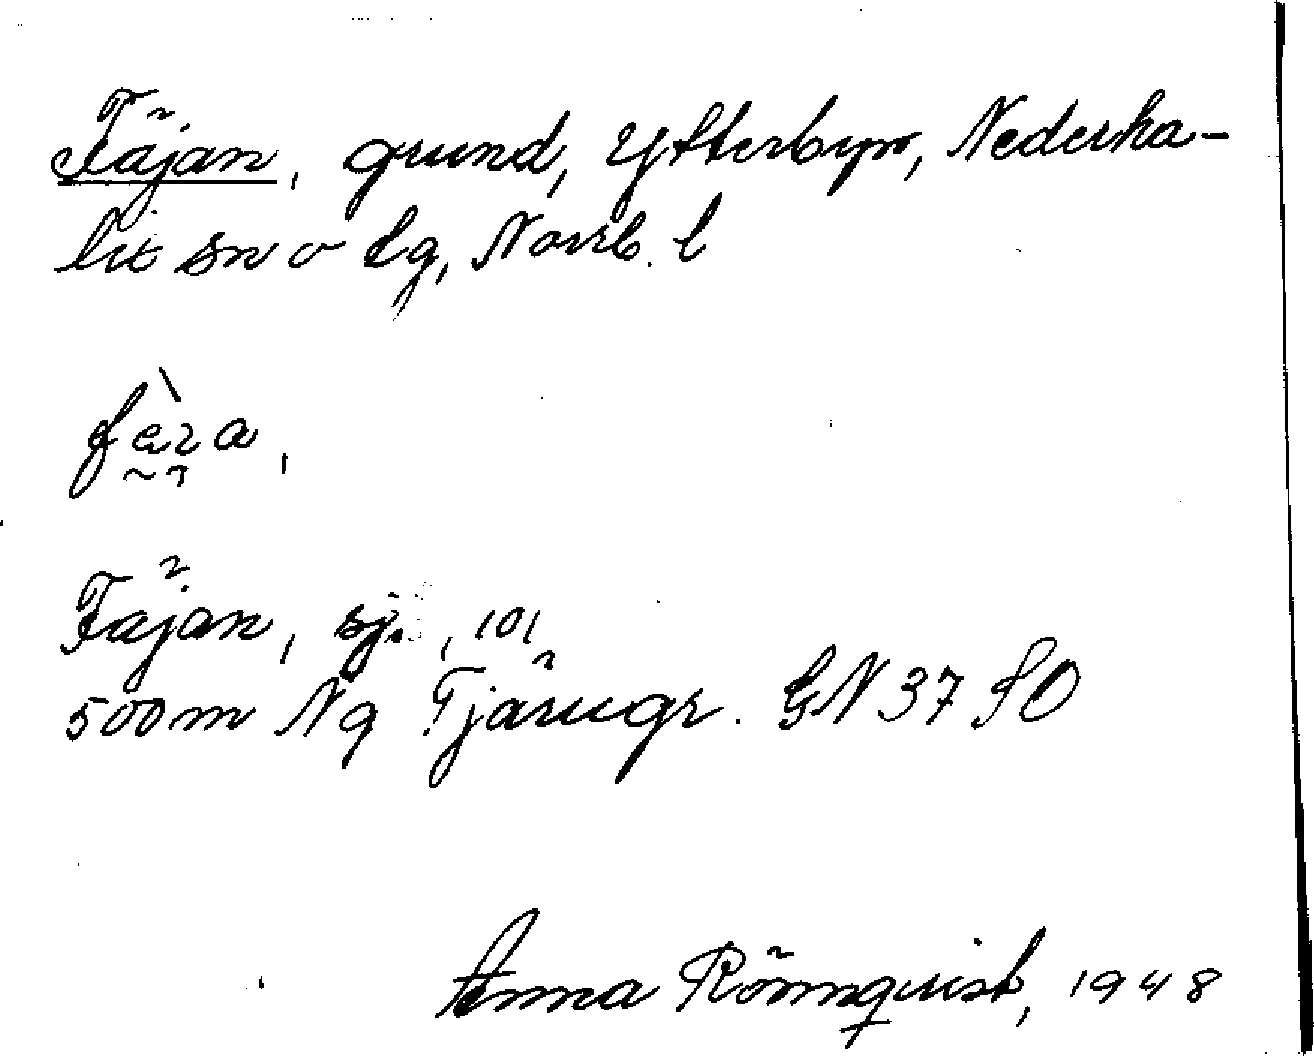 Fäjan, grund, Ytterbyn, Nederka-
lix sn o lg, Norrb. l
Fäjan, sj., 101
500 m N g Tjärugr. GN 37 SO
Anna Rönnqvist, 1948